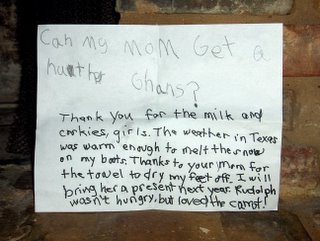 Can my mom Get a
Chans?
Thank you for the milk and
cookies, girls. The weather in Texas
was warm enough to melt the snow
on my boots. Thanks to your mom for
the towel to dry my feet off. I will
bring her a present next year. Rudolph
wasn't hungry, but loved the carrot!